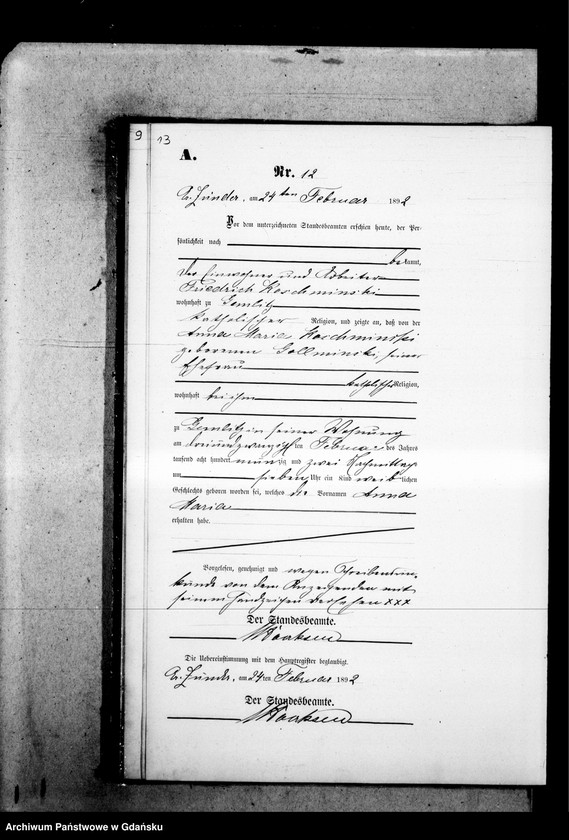 9 13
A.
Nr. 12
Gr. Zünder, am 24ten Februar 1892
Vor dem unterzeichneten Standesbeamten erschien heute, der Per-
sönlichkeit nach
bekannt,
der Einwohner und Arbeiter
Friedrich Koschminski
wohnhaft zu Gemlitz
katholischer Religion, und zeigte an, daß von der
Anna Maria Koschminski
geborenen Gollminski, seiner
Ehefrau
katholischer Religion,
wohnhaft bei ihm
zu Gemlitz in seiner Wohnung
am dreiundzwanzigsten Februar des Jahres
tausend acht hundert neunzig und zwei Nachmittags
um sieben Uhr ein Kind weiblichen
Geschlechts geboren worden sei, welches die Vornamen Anna
Maria
erhalten habe.
Vorgelesen, genehmigt und wegen Schreibensun-
kunde von dem Anzeigenden mit
seinem Handzeichen versehen xxx
Der Standesbeamte.
Die Uebereinstimmung mit dem Hauptregister beglaubigt.
Gr. Zünder, am 24ten Februar 1892
Der Standesbeamte.
Archiwum Państwowe w Gdańsku